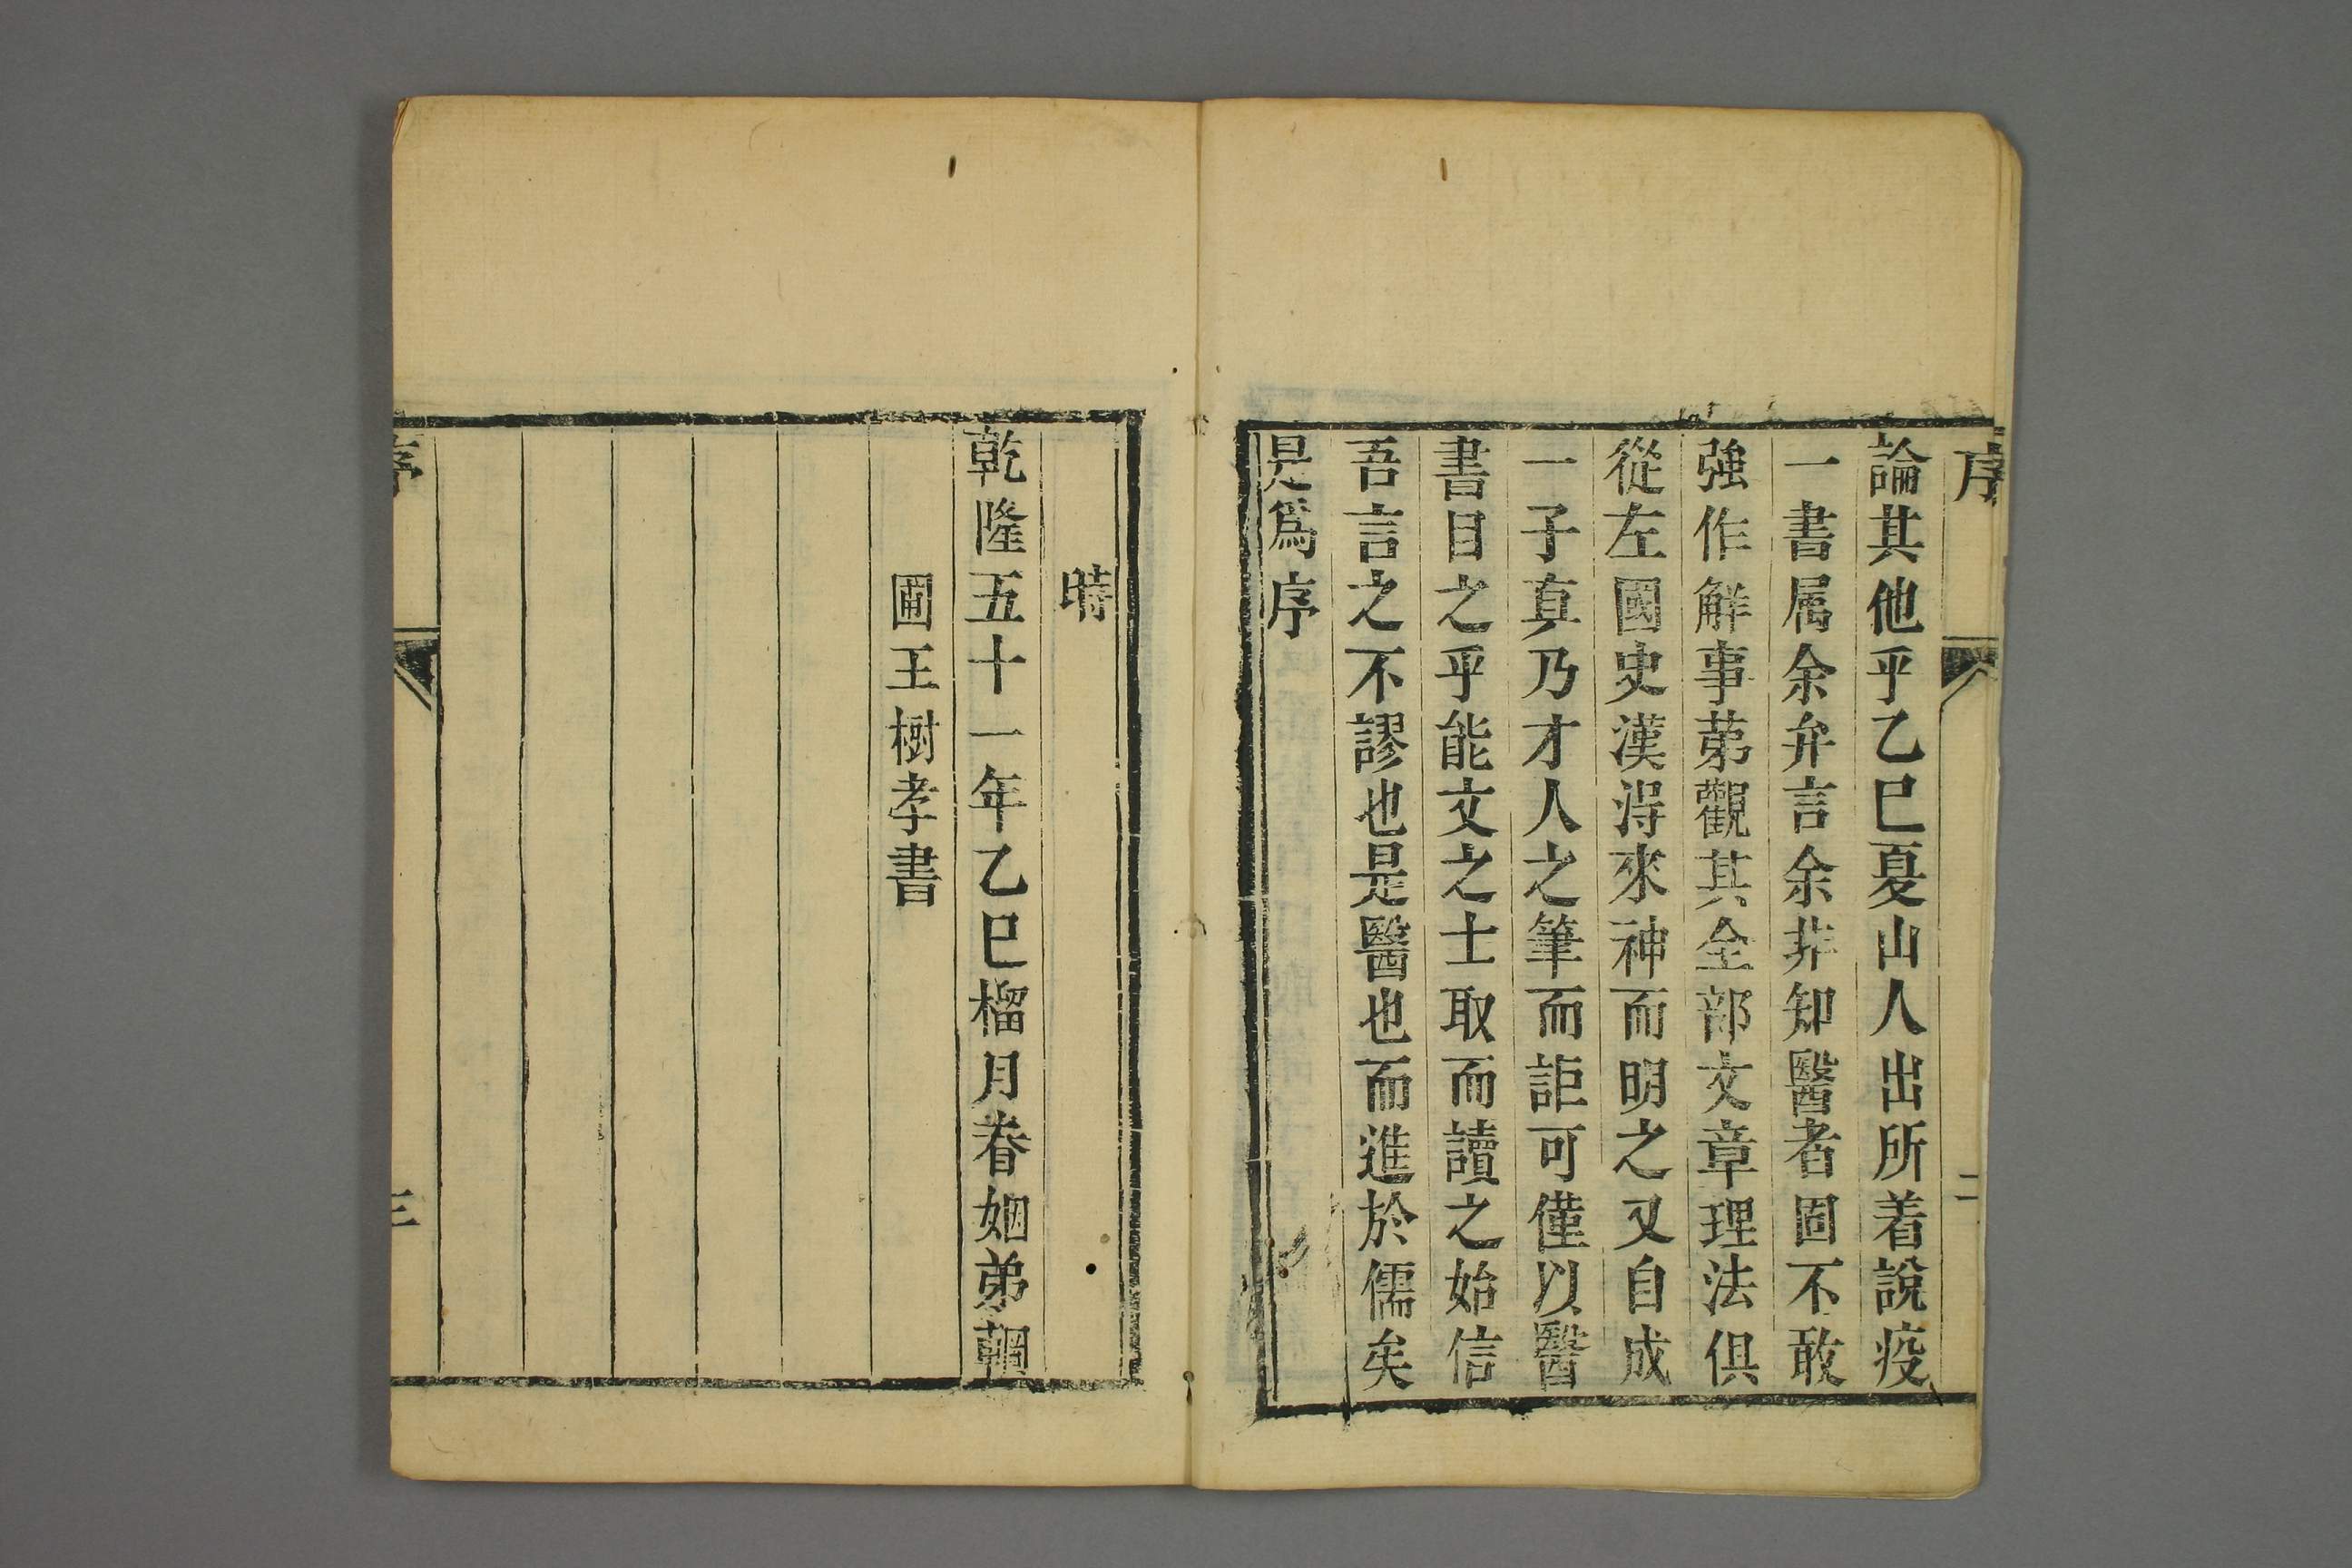 序
二
論其他乎乙巳夏山人出所着說疫
一書属余弁言余非知醫者固不敢
強作解事苐觀其全部文章理法俱
從左國史漢淂來神而明之又自成
一子真乃才人之筆而詎可僅以醫
書目之乎能文之士取而讀之始信
吾言之不謬也是醫也而進於儒矣
是爲序
時
乾隆五十一年乙巳榴月眷姻弟
圃王樹孝書
序
三